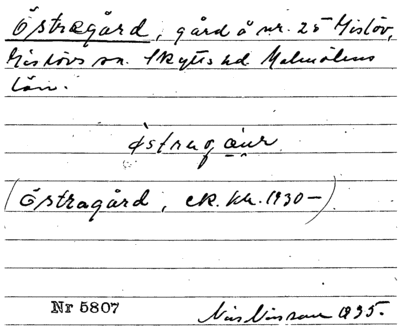 Östragård, gård å nr. 25 Mislöv,
Mislövs sn. Skytts hd Malmöhus
län.
östragåur
(Östragård, ek. kh. 1930–)
Nr 5807
Nils Nilsson 1935.